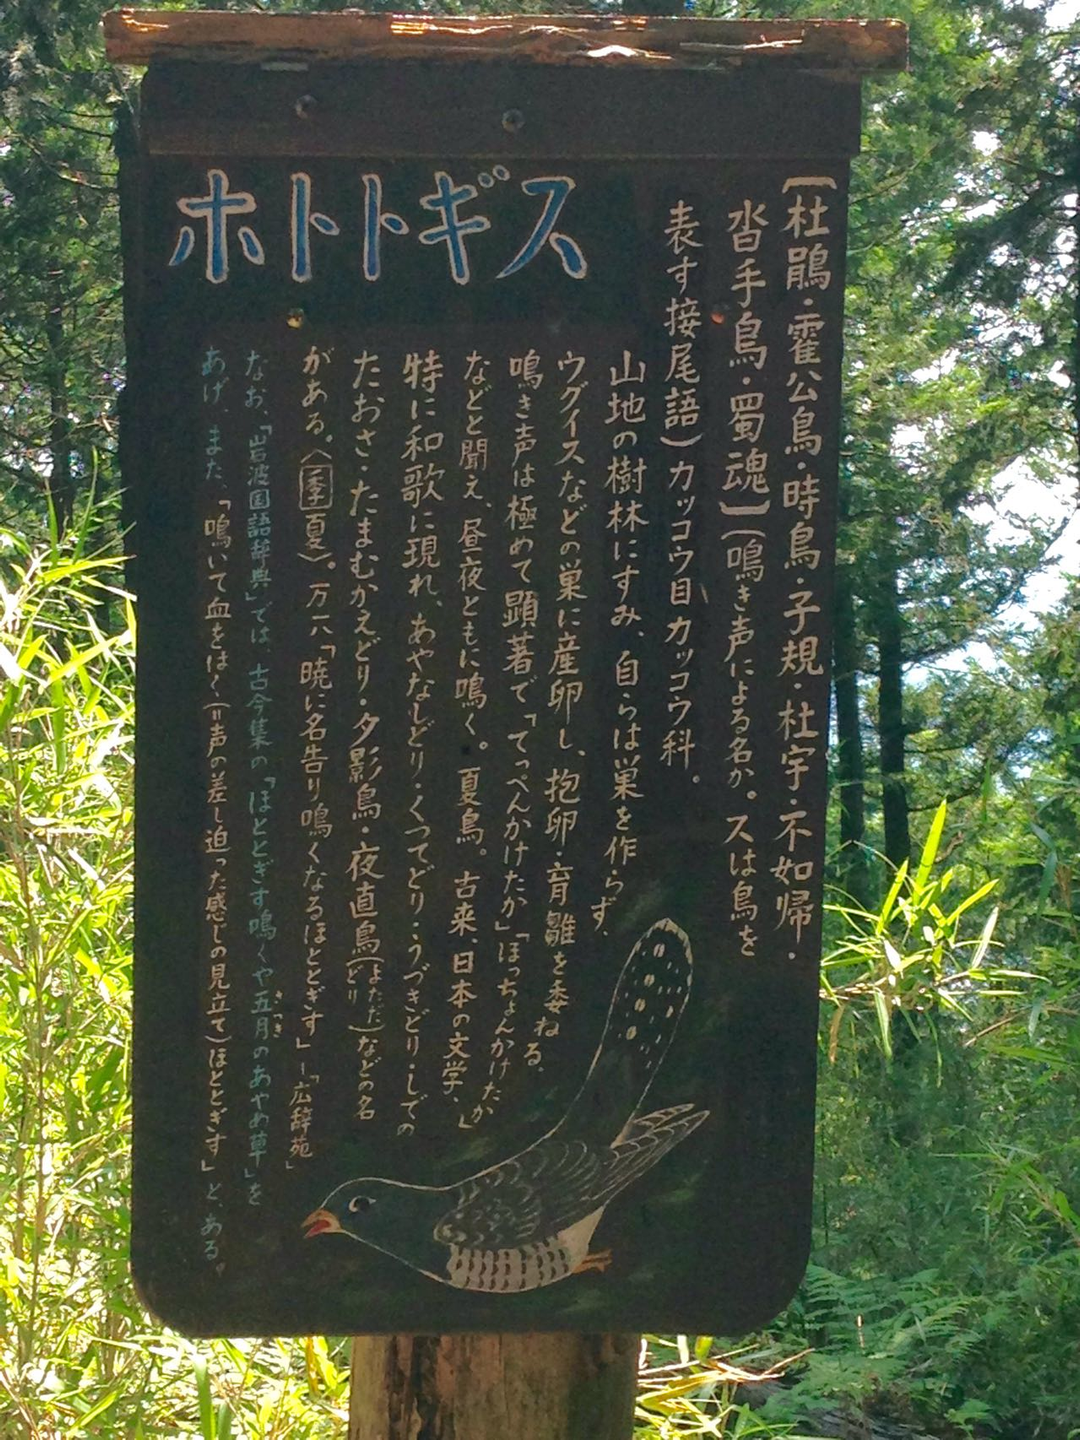 ホトトギス
〔杜鵑・霍公鳥・時鳥・子規・杜宇・不如帰・
沓手鳥・蜀魂〕(鳴き声による名か。スは鳥を
表す接尾語)カッコウ目カッコウ科。
山地の樹林にすみ、自らは巣を作らず、
ウグイスなどの巣に産卵し、抱卵・育雛を委ねる。
鳴き声は極めて顕著で「てっぺんかけたか」「ほっちょんかけたか」
などと聞え、昼夜ともに鳴く。夏鳥。古来、日本の文学、
特に和歌に現れ、あやなしどり・くつてどり・うづきどり・しでの
たおさ・たまむかえどり・夕影鳥・夜直鳥(よただどり)などの名
がある。〈季夏〉。万一八「暁に名告り鳴くなるほととぎす」―「広辞苑」
なお、「岩波国語辞典」では、古今集の「ほととぎす鳴くや五月のあやめ草」を
さつき
あげ、また、「鳴いて血をはく(=声の差し迫った感じの見立て)ほととぎす」と、ある。